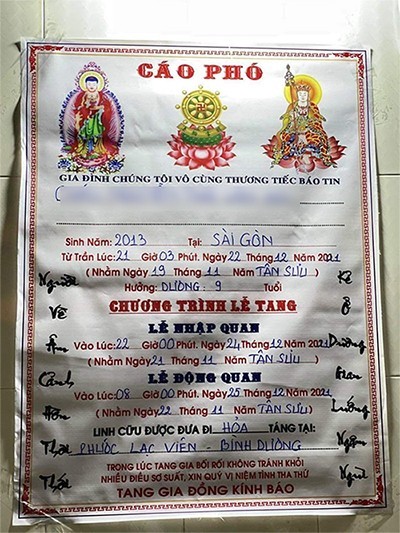 CÁO PHÓ
GIA ĐÌNH CHÚNG TÔI VÔ CÙNG THƯƠNG TIẾC BÁO TIN
Sinh Năm: 2013 Tại: SÀI GÒN
Từ Trần Lúc: 21 Giờ 03 Phút. Ngày 22 Tháng 12 Năm 2021
( Nhằm Ngày 19 Tháng 11 Năm TÂN SỬU )
Hưởng: DƯƠNG: 9 Tuổi
CHƯƠNG TRÌNH LỄ TANG
LỄ NHẬP QUAN
Vào Lúc: 22 Giờ 00 Phút. Ngày 24 Tháng 12 Năm 2021
( Nhằm Ngày 21 Tháng 11 Năm TÂN SỬU )
LỄ ĐỘNG QUAN
Vào Lúc: 08 Giờ 00 Phút. Ngày 25 Tháng 12 Năm 2021
( Nhằm Ngày 22 Tháng 11 Năm TÂN SỬU )
LINH CỮU ĐƯỢC ĐƯA ĐI HỎA TÁNG TẠI:
PHƯỚC LẠC VIÊN - BÌNH DƯƠNG
TRONG LÚC TANG GIA BỐI RỐI KHÔNG TRÁNH KHỎI
NHIỀU ĐIỀU SƠ SUẤT, XIN QUÝ VỊ NIỆM TÌNH THA THỨ
TANG GIA ĐỒNG KÍNH BÁO
Người
Về
Âm
Cảnh
Hồn
Thơ
Thới
Kẻ
Ở
Dương
Gian
Luống
Ngậm
Ngùi